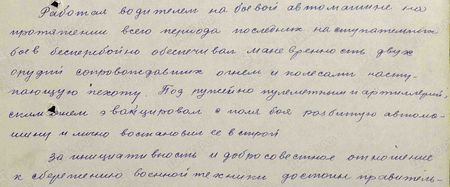 Работая водителем на боевой автомашине на
протяжении всего периода последних наступательных
боев бесперебойно обеспечивал маневренность двух
орудий сопровождавших огнем и колесами насту-
пающую пехоту. Под ружейно пулеметным и артиллерий-
ским огнем эвакуировал с поля боя разбитую автома-
шину и лично востановил ее в строй
За инициативность и добросовестное отношение
к сбережению военной техники достоин правитель-